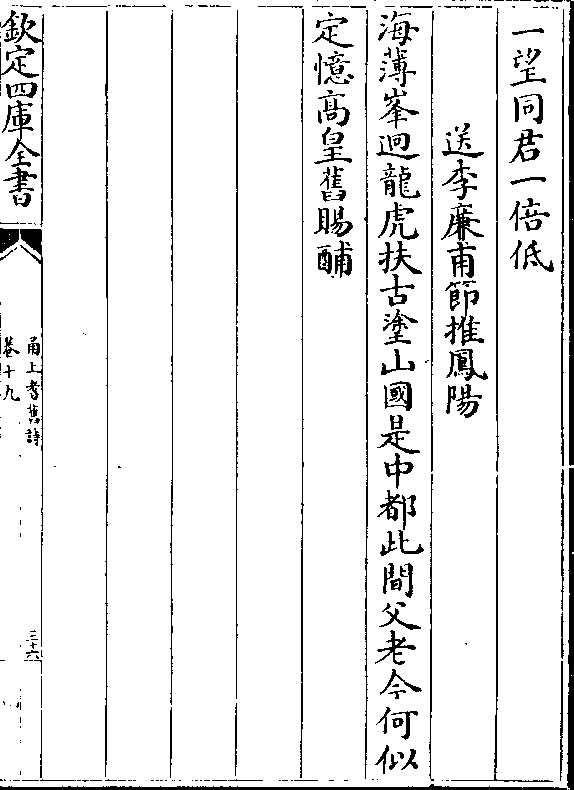 一望同君一倍低
送李廉甫節推鳳陽
海薄峯迴龍虎扶古塗山國是中都此間父老今何似
定憶髙皇舊賜酺
欽定四庫全書
甬上耆舊詩
卷十九
三十六